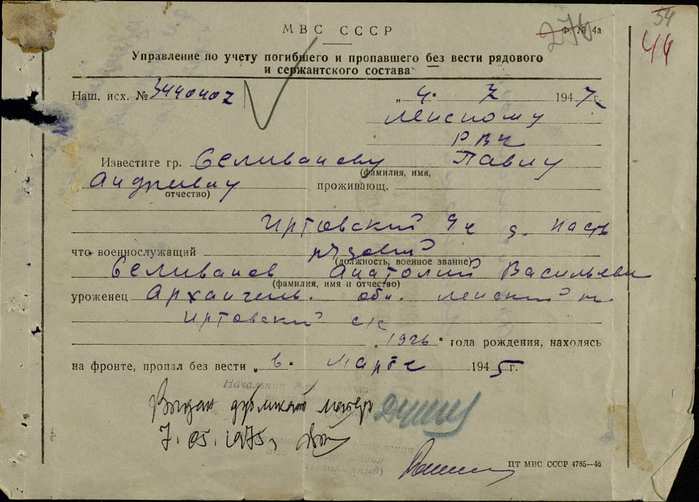 54
МВС СССР
274
Ф. № 4а
44
Управление по учету погибшего и пропавшего без вести рядового
и сержантского состава
Наш. исх. № 3440402
„ 4. 7 1947г.
Ленскому
РВК
Известите гр. Селиванову Павлу
(фамилия, имя,
Андреевичу проживающ.
отчество)
Иртовский
что военнослужащий рядовой
(должность, военное звание)
Селиванов Анатолий Васильевич
(фамилия, имя и отчество)
уроженец Архангельск. обл. Ленский
Иртовский с/с
1926 года рождения, находясь
на фронте, пропал без вести в. марте 1945г.
Выдан дубликат матери
7.05.1975г.
ЦТ МВС СССР 4765—46